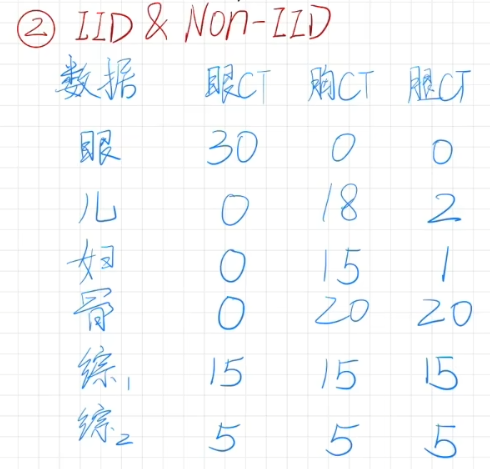 ② IID & Non-IID
数据 眼CT 胸CT 腿CT
眼 30 0 0
儿 0 18 2
妇 0 15 1
骨 0 20 20
综1 15 15 15
综2 5 5 5